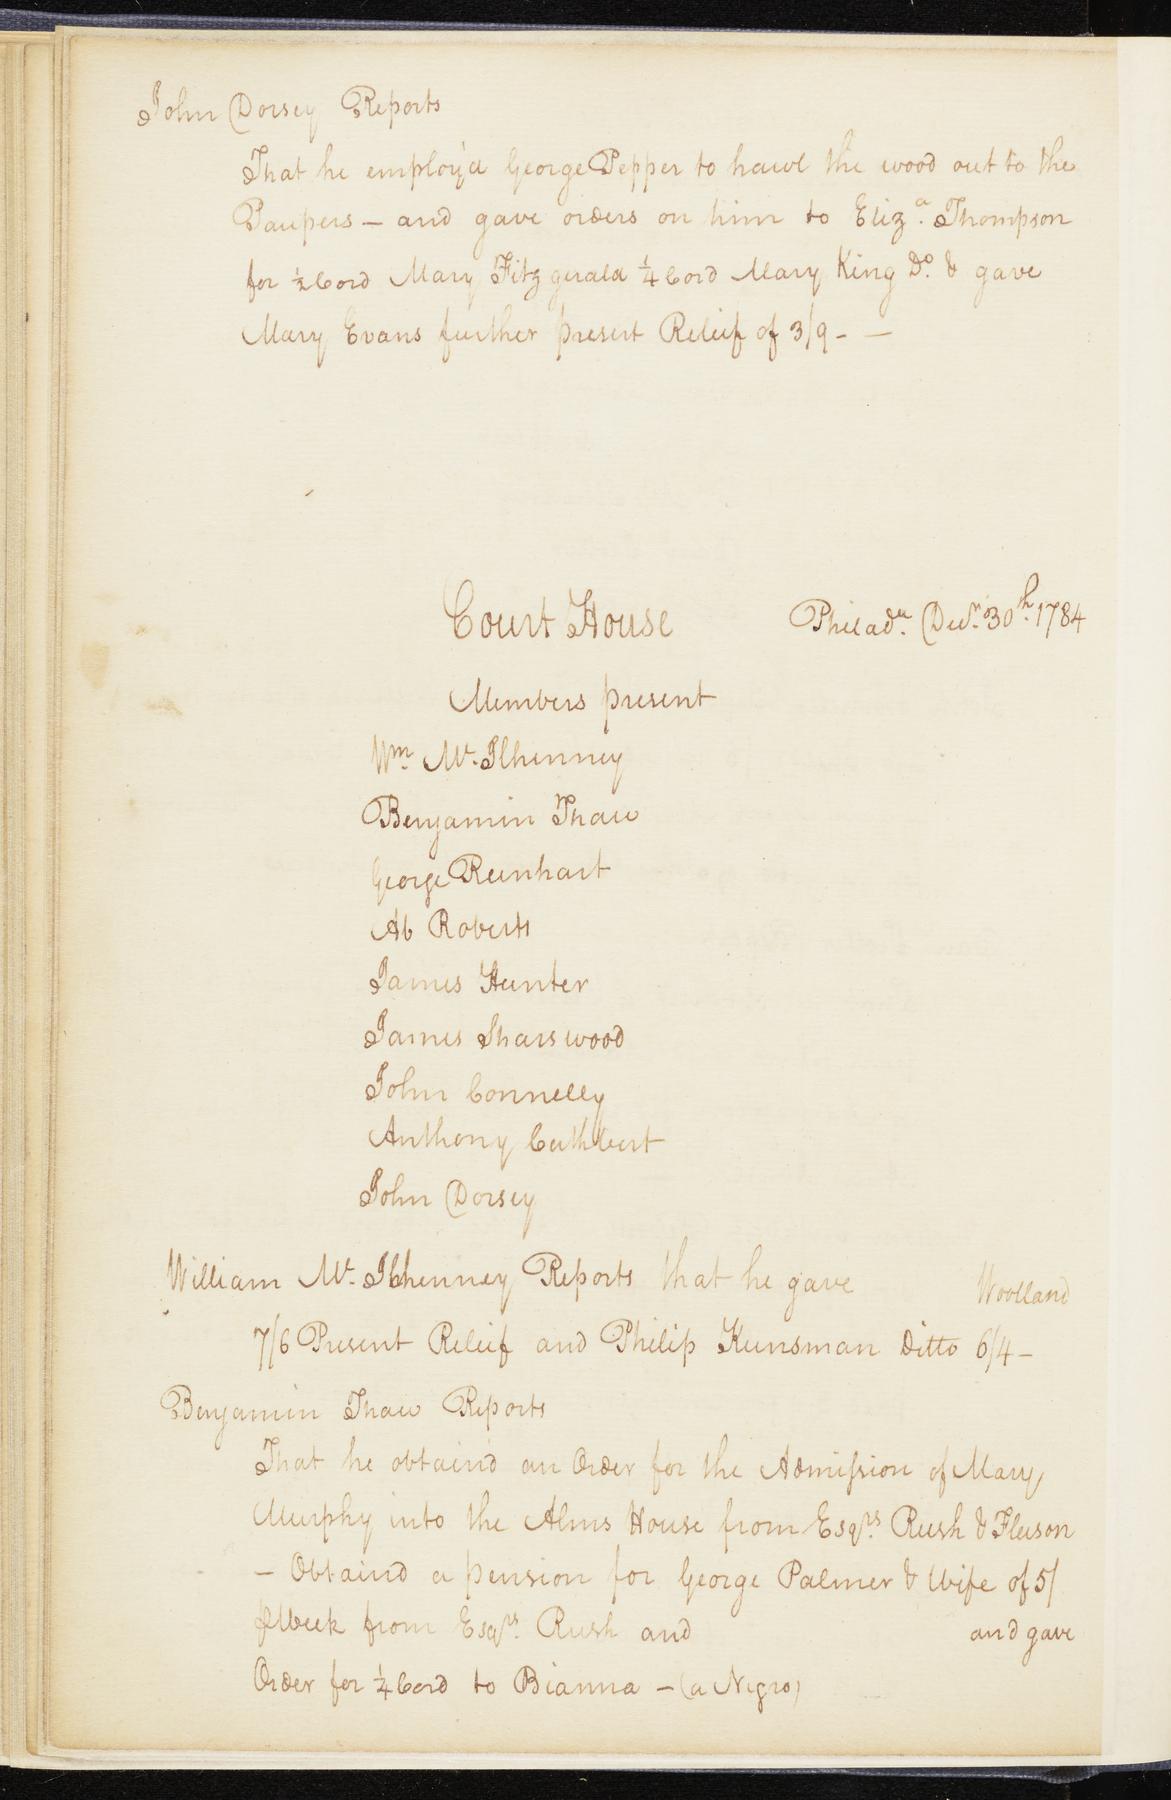 John Dorsey Reports
That he employ'd George Pepper to hawl the wood out to the
Paupers — and gave orders on him to Eliz.a Thompson
for ½ Cord Mary Fitzgerald ¼ Cord Mary King Do. & gave
Mary Evans further present Releif of 3/9 - —
Court House Philada. Decr. 30th. 1784
Members present
Wm. Mc.Ilhenney
Benjamin Thaw
George Reinhart
Ab Roberts
James Hunter
James Sharswood
John Connelly
Anthony Cuthbert
John Dorsey
William Mc. Ilhenney Reports that he gave Woolland
7/6 Present Releif and Philip Kunsman Ditto 6/4 -
Benjamin Thaw Reports
That he obtaind an Order for the Admission of Mary
Murphy into the Alms House from Esqrs. Rush &
— Obtaind a pension for George Palmer & Wife of 5/
Week from Esqrs. Rush and and gave
Order for ¼ Cord to Bianna — (a Negro)